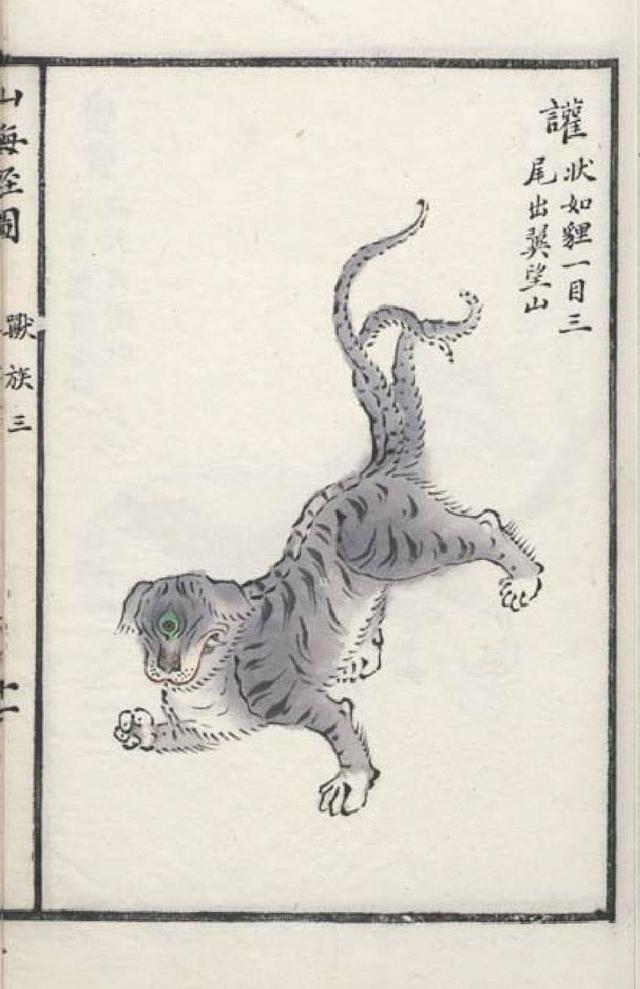 讙
狀如貍一目三
尾出翼望山
山海経圖
獸族三